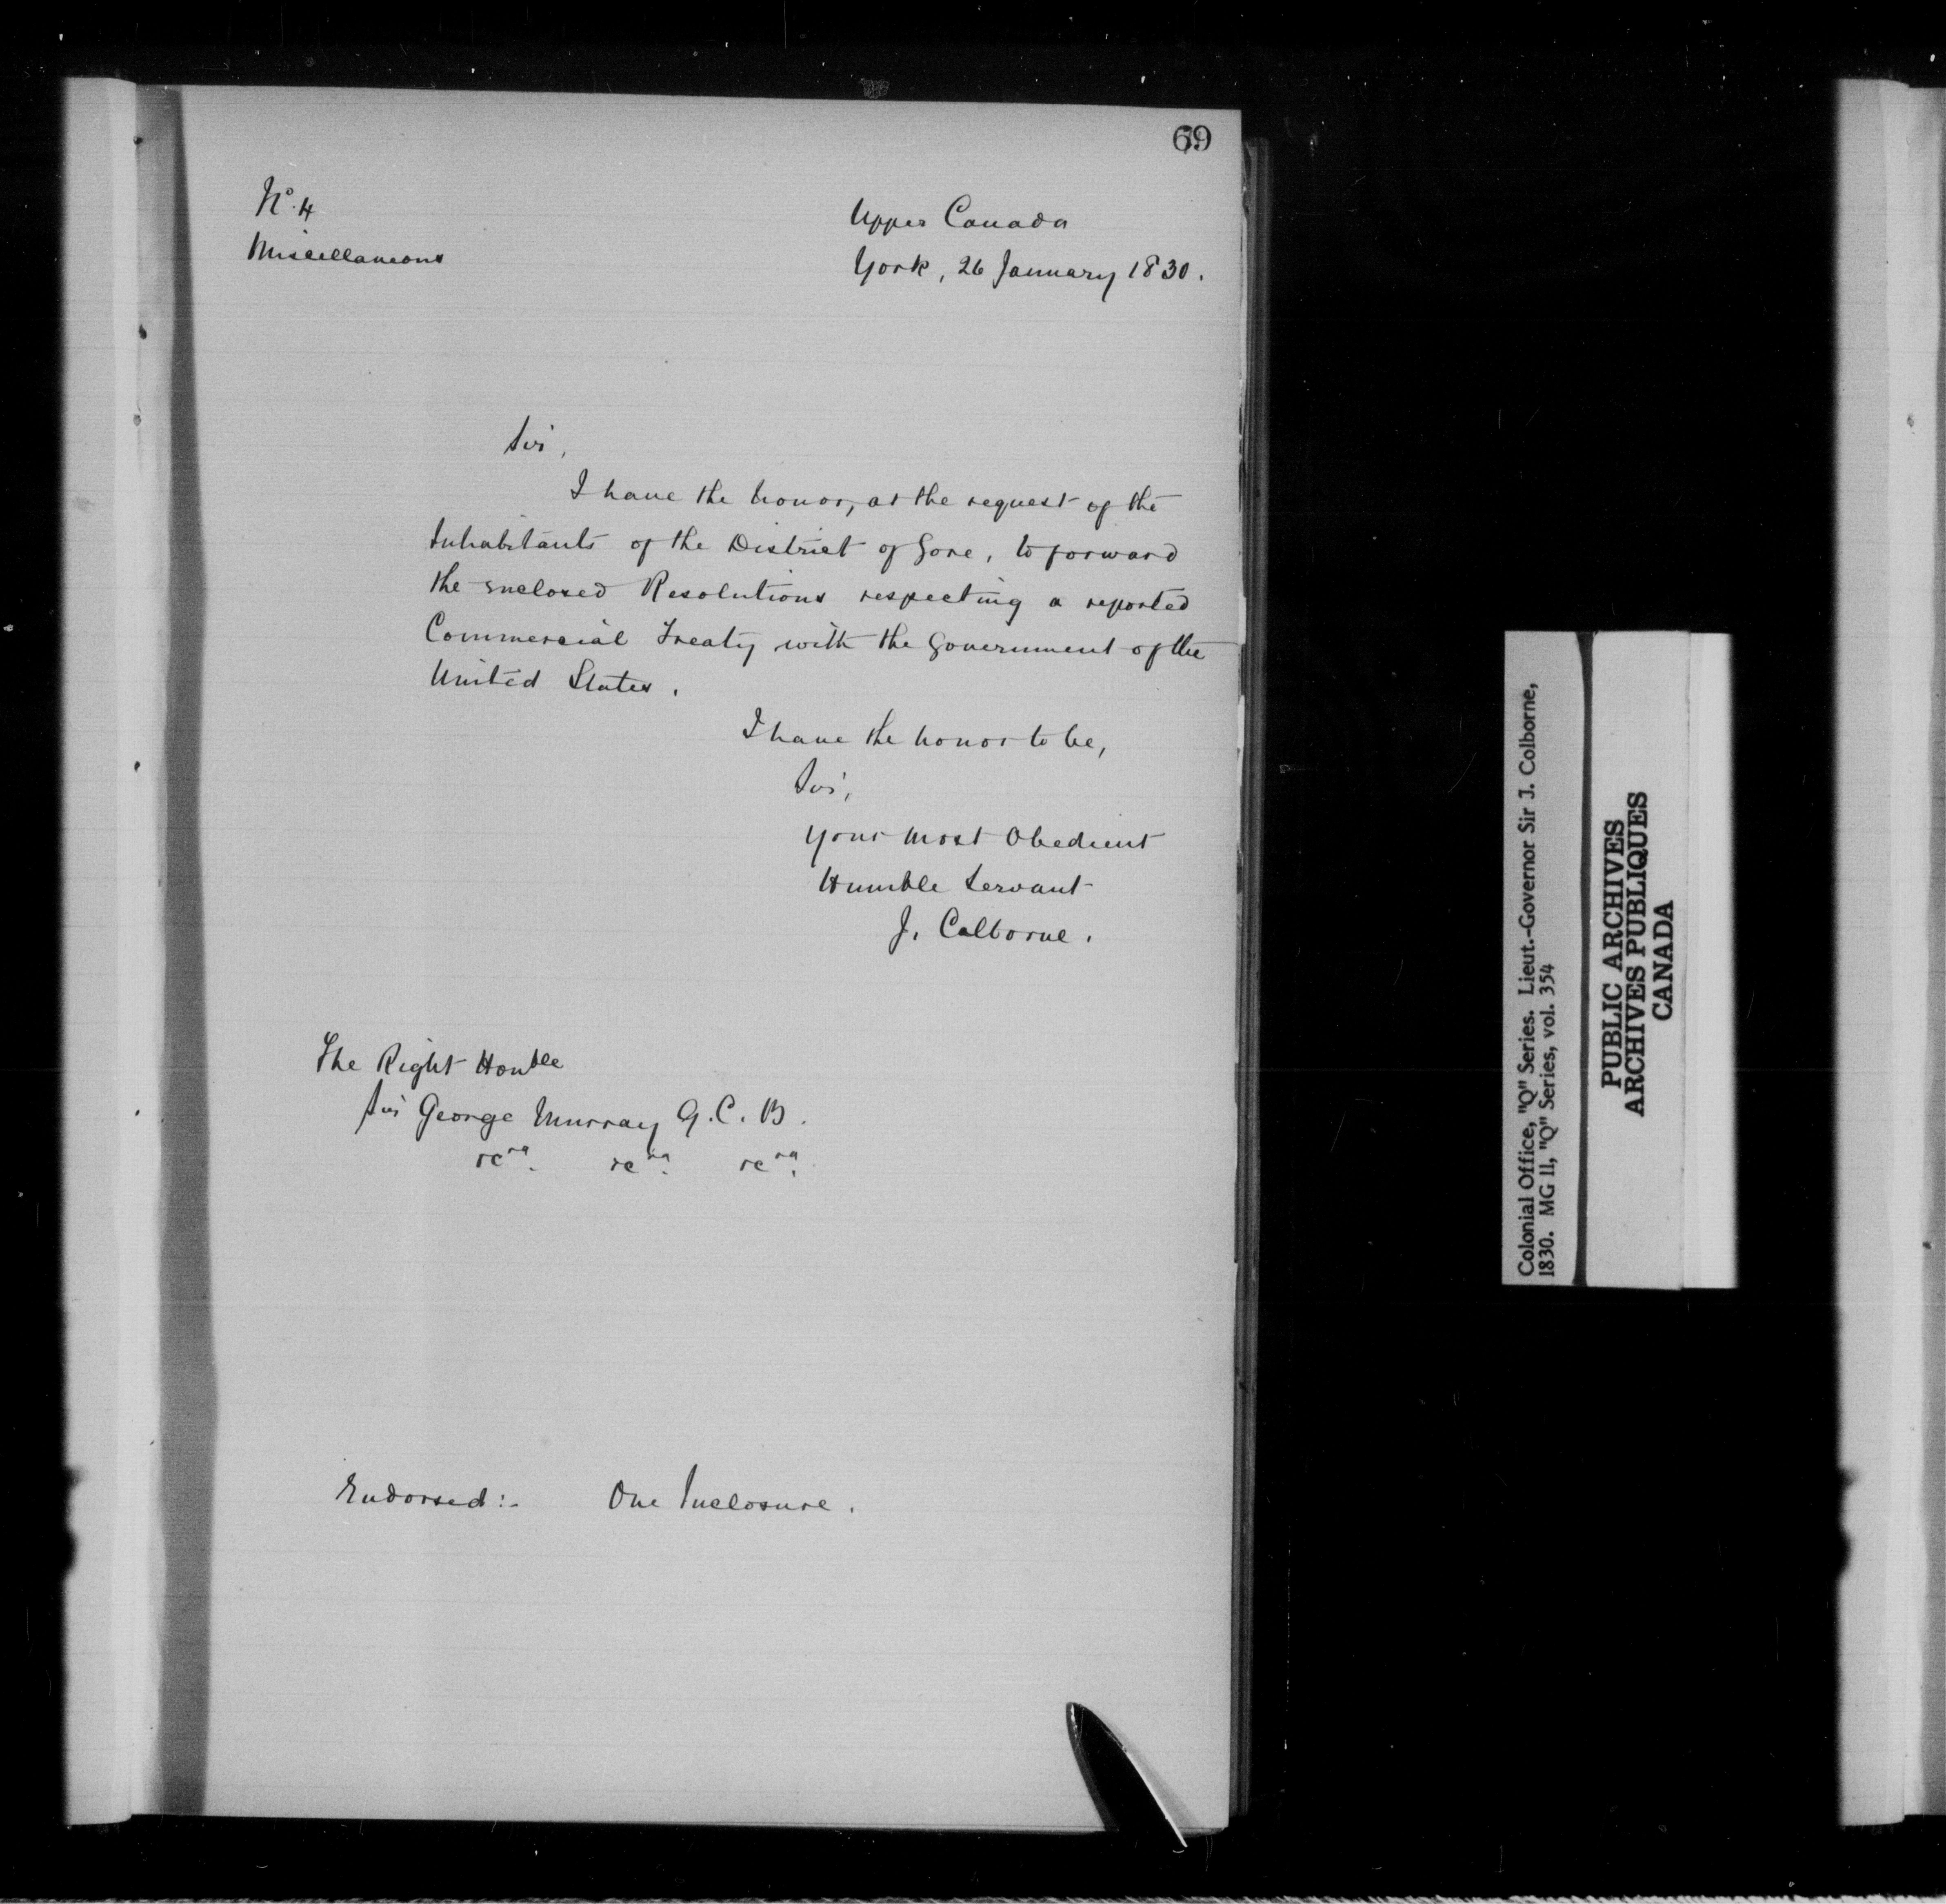 69
No. 4
Miscellaneous
Upper Canada
York, 26 January 1830.
Sir,
I have the honor, at the request of the
Inhabitants of the District of Gore, to forward
the enclosed Resolutions respecting a reported
Commercial Treaty with the Government of the
United States.
I have the honor to be,
Sir,
Your Most Obedient
Humble Servant
J. Colborne.
The Right Honble
Sir George Murray G.C.B.
&c&a. &c&a. &c&a.
Endorsed:- One Inclosure.
Colonial Office, "Q" Series. Lieut.-Governor Sir J. Colborne,
1830. MG 11, "Q" Series, vol. 354
PUBLIC ARCHIVES
ARCHIVES PUBLIQUES
CANADA